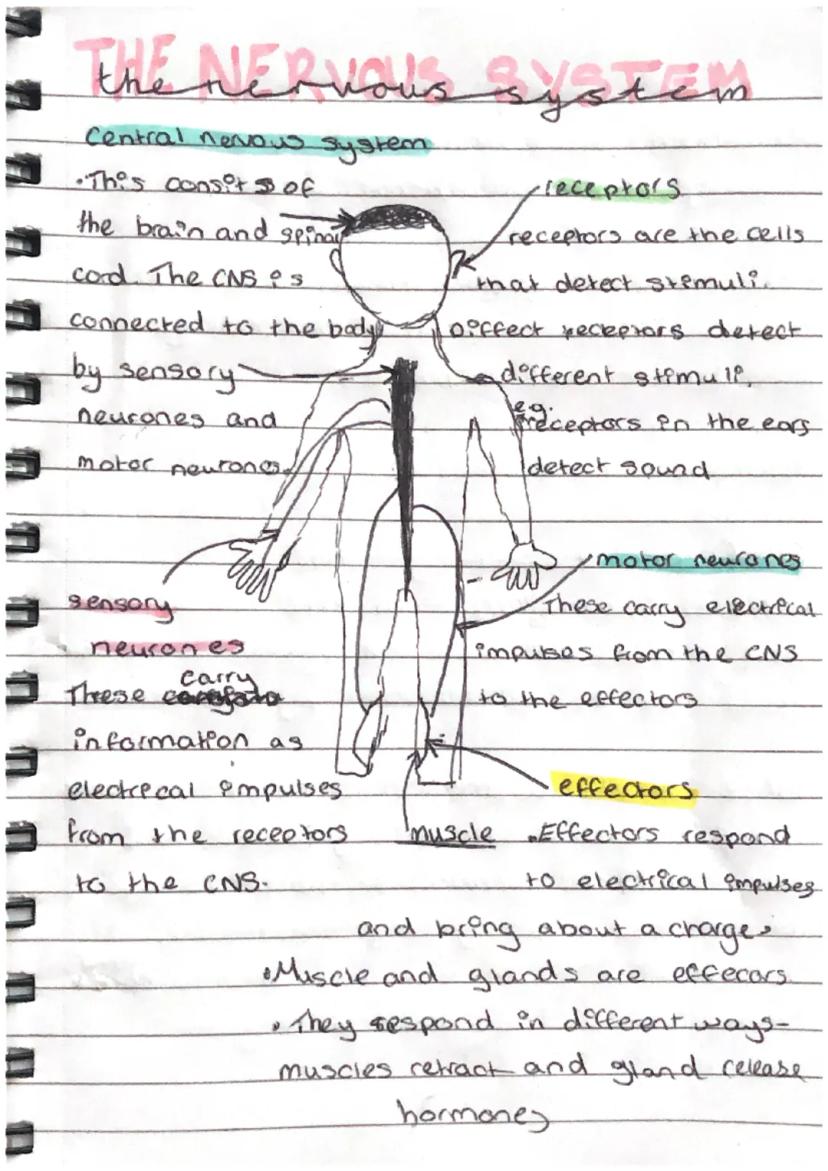 THE NERVOUS SYSTEM
the nervous system
central nervous system
•This consits of
the brain and spinal
cord. The CNS is
connected to the body
by sensory
neurones and
motor neurones
receptors
receptors are the cells
that detect stimuli.
Diffect receptors detect
different stimuli.
eg.
receptors in the ears
detect sound
sensory
neurones
carry
These
information as
electrecal impulses
from the receptors
to the CNS.
motor neurones
These carry electrical
impulses from the CNS
to the effectors
effectors
muscle
•Effectors respond
to electrical impulses
and bring about a charge.
•Muscle and glands are effecors
•They respond in different ways-
muscles retract and gland release
hormones